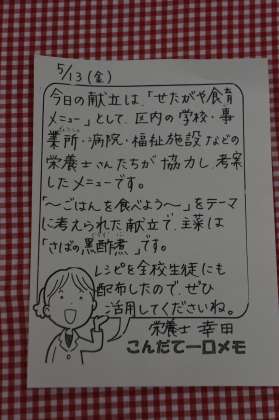 5/13(金)
今日の献立は、「せたがや食育
メニュー」として、区内の学校・事
業所・病院・福祉施設などの
栄養士さんたちが協力し、考案
したメニューです。
「〜ごはんを食べよう〜」をテーマ
に考えられた献立で、主菜は
「さばの黒酢煮」です。
レシピを全校生徒にも
配布したので、ぜひ
活用してくださいね。
栄養士 幸田
こんだて一口メモ